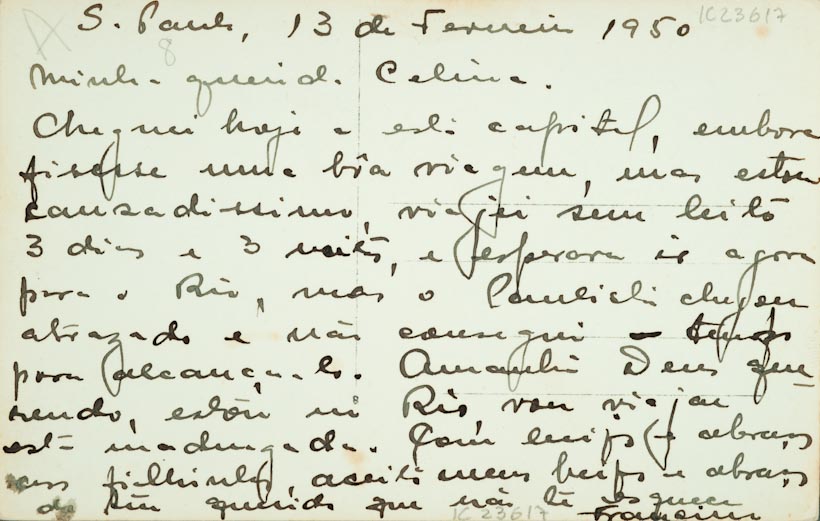 IC 23617
S. Paulo, 13 de Fevereiro 1950
8
Minha querida Celina.
Cheguei hoje a está capital, embora
fisesse uma bôa viagem, mas estou
cansadissimo, viajei sem leito
3 dias e 3 noites, e esperava ir agora
para o Rio, mas o Paulista chegou
atrazado e não consegui tempo
para alcança-lo. Amanhã Deus que-
rendo, estou no Rio, vou viajar
está madrugada. Com beijos e abraços
aos filhinhos, aceite meus beijos e abraços
do teu querido que não te esquece
IC 23617 Francisco